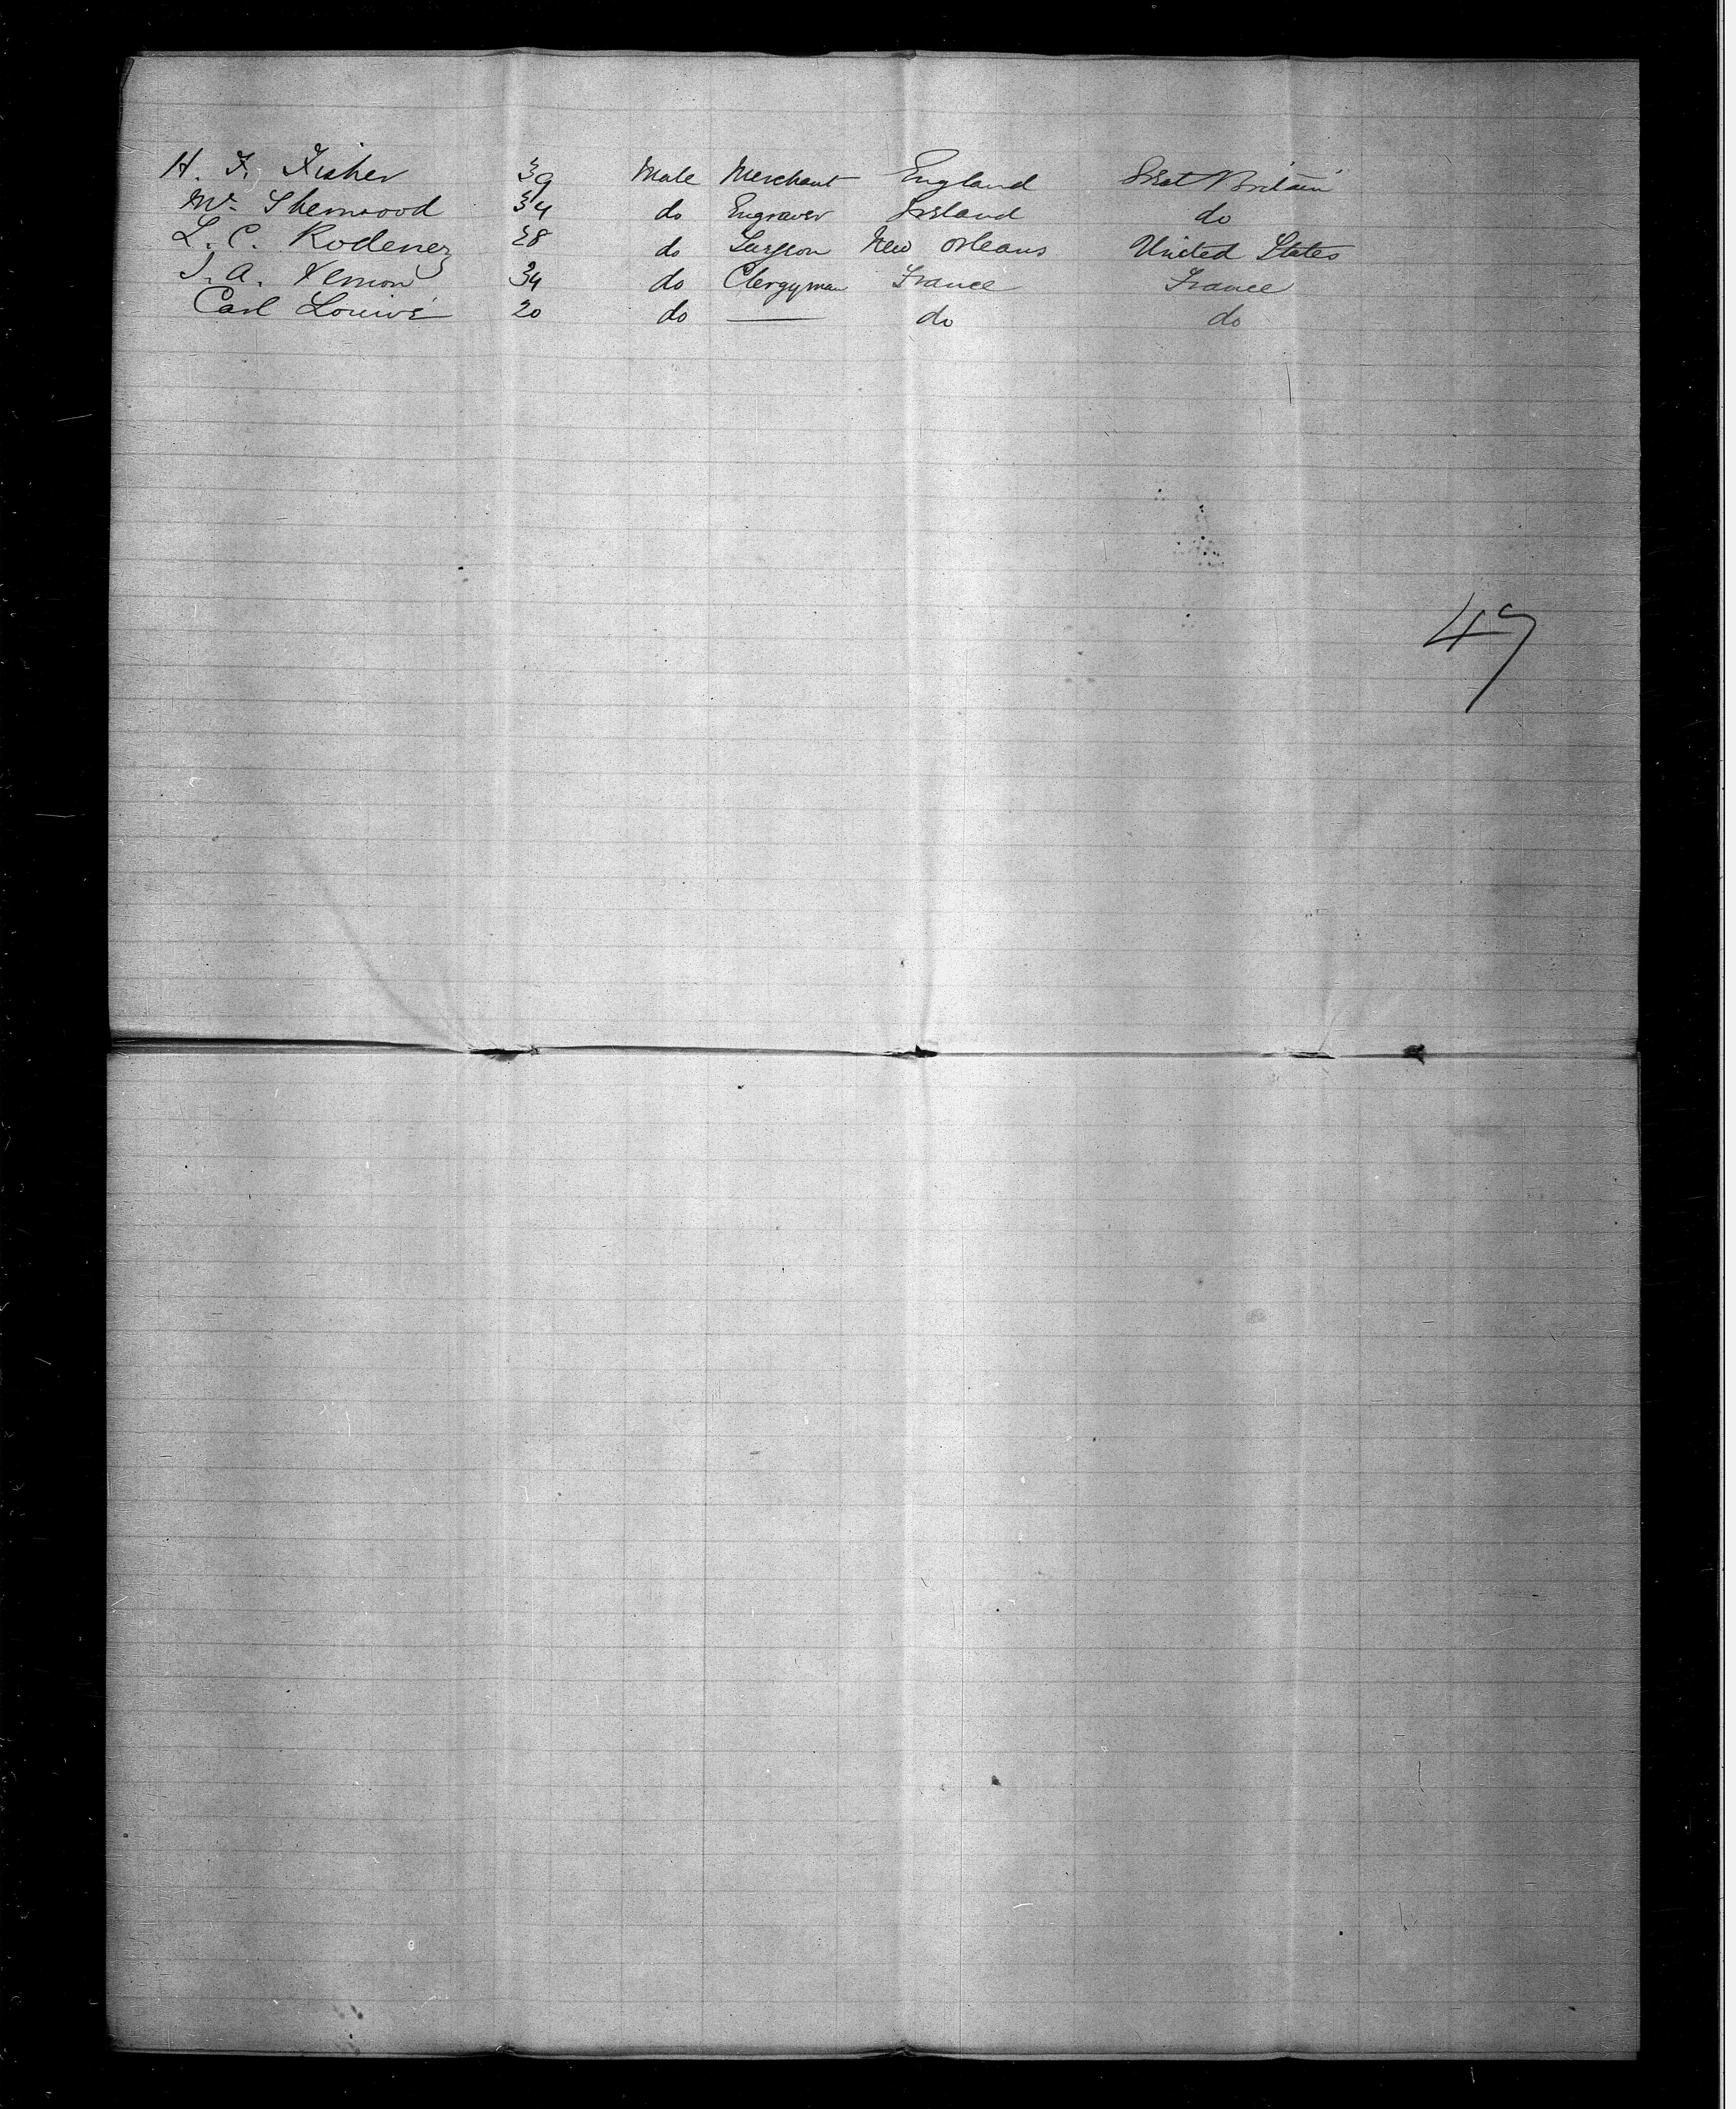 H. F. Fisher 39 Male Merchant England Great Britain
Mr. Sherwood 34 do Engraver Ireland do
L. C. Rodenez 28 do Surgeon New Orleans United States
J. A. Vernon 34 do Clergyman France France
Carl 20 do — do do
47